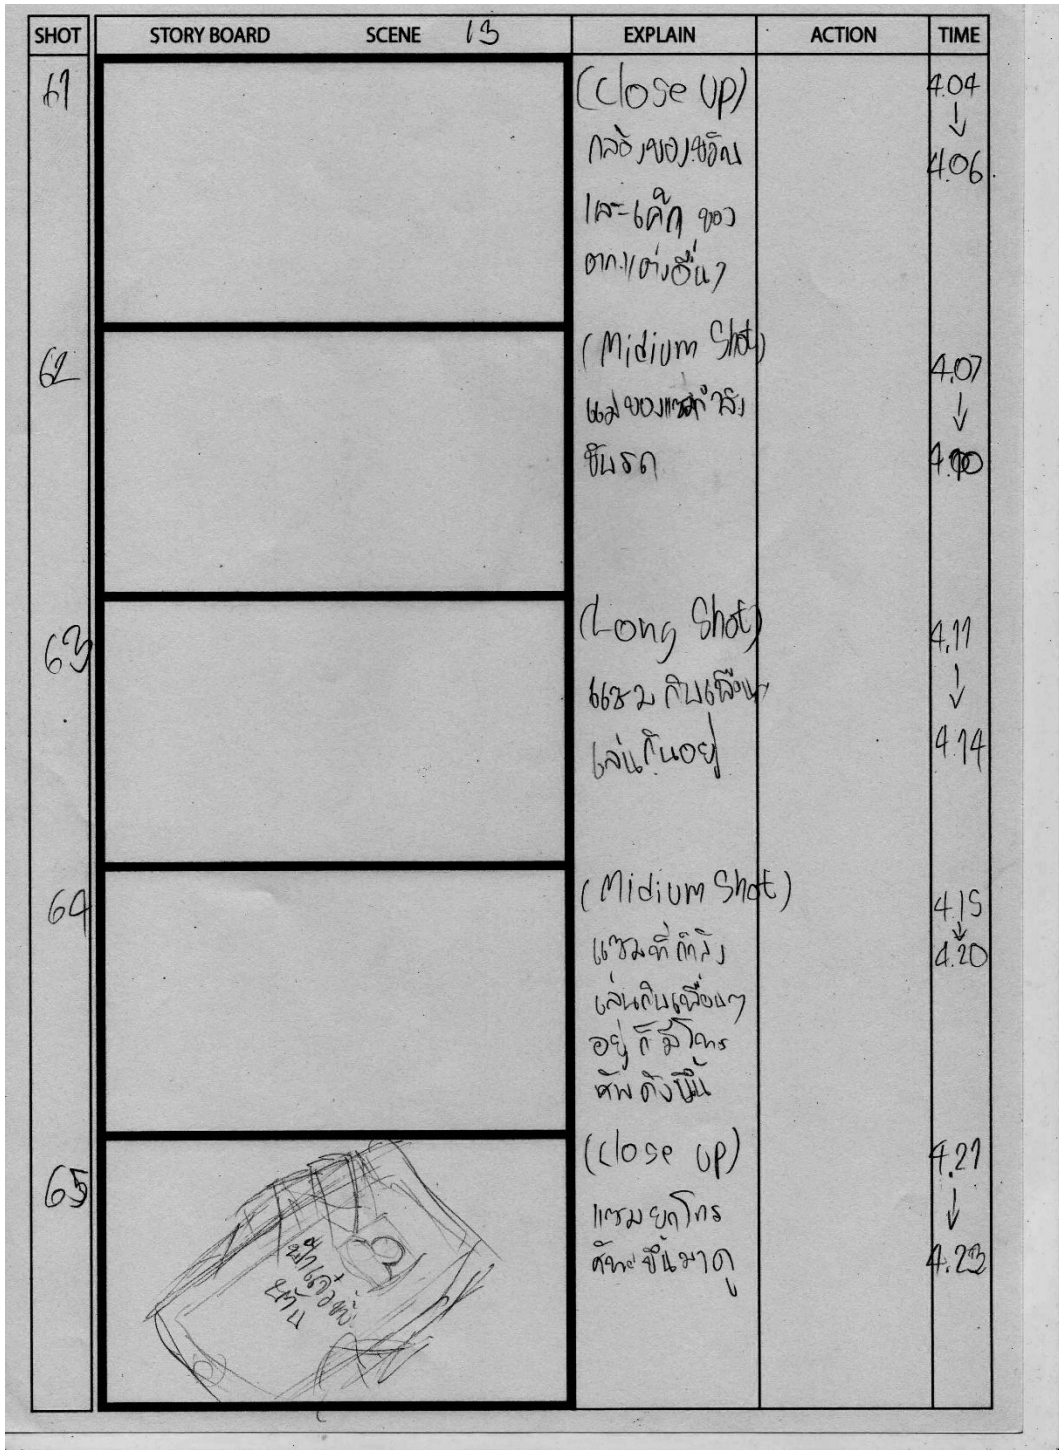 SHOT STORY BOARD SCENE 13 EXPLAIN ACTION TIME
61
(Close Up)
กล่องของขวัญ
และเค้ก ของ
ตกแต่งอื่นๆ
4.04
4.06
62
(Midium Shot)
แม่ของแซมกำลัง
ขับรถ
4.07
4.10
63
(Long Shot)
แซม กับเพื่อนๆ
เล่นกันอยู่
4.11
4.14
64
(Midium Shot)
แซมที่กำลัง
เล่นกับเพื่อนๆ
อยู่ ก็ มีโทร
ศัพ ดังขึ้น
4.15
4.20
65
(Close up)
แซม ยกโทร
ศัพ ขึ้นมาดู
4.21
4.23